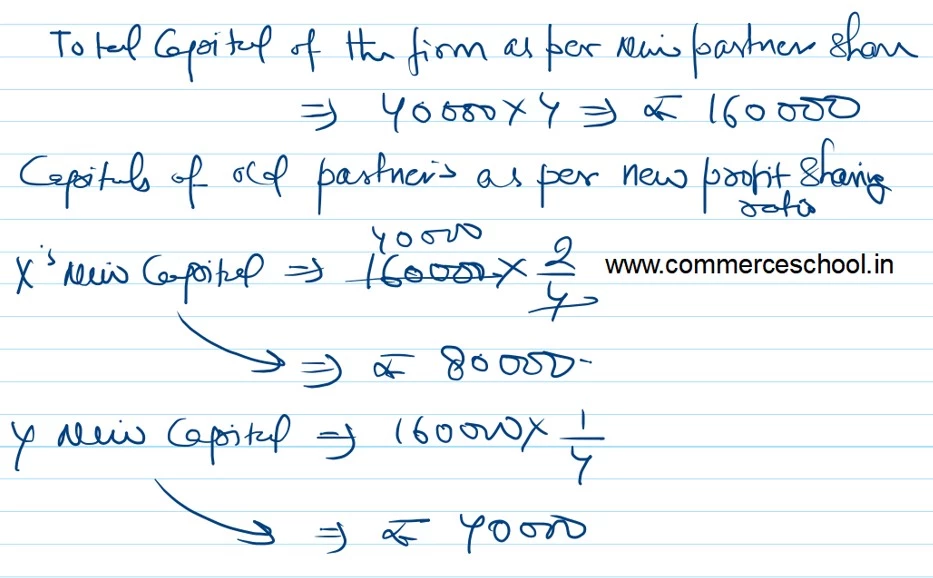 Total Capital of the firm as per new partner share
⇒ 40000 × 4 ⇒ ₹ 160000
Capitals of old partner's as per new profit sharing
ratio
40000
X's New Capital ⇒ 160000 × 2/4
www.commerceschool.in
⇒ ₹ 80000
Y New Capital ⇒ 160000 × 1/4
⇒ ₹ 40000